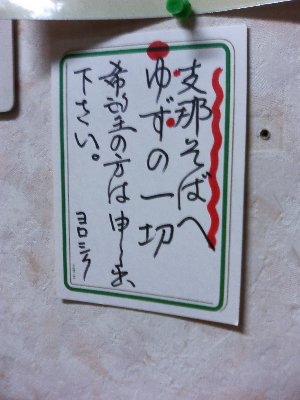 支那そばへ
ゆずの一切
希望の方は申し出
下さい。
ヨロシク